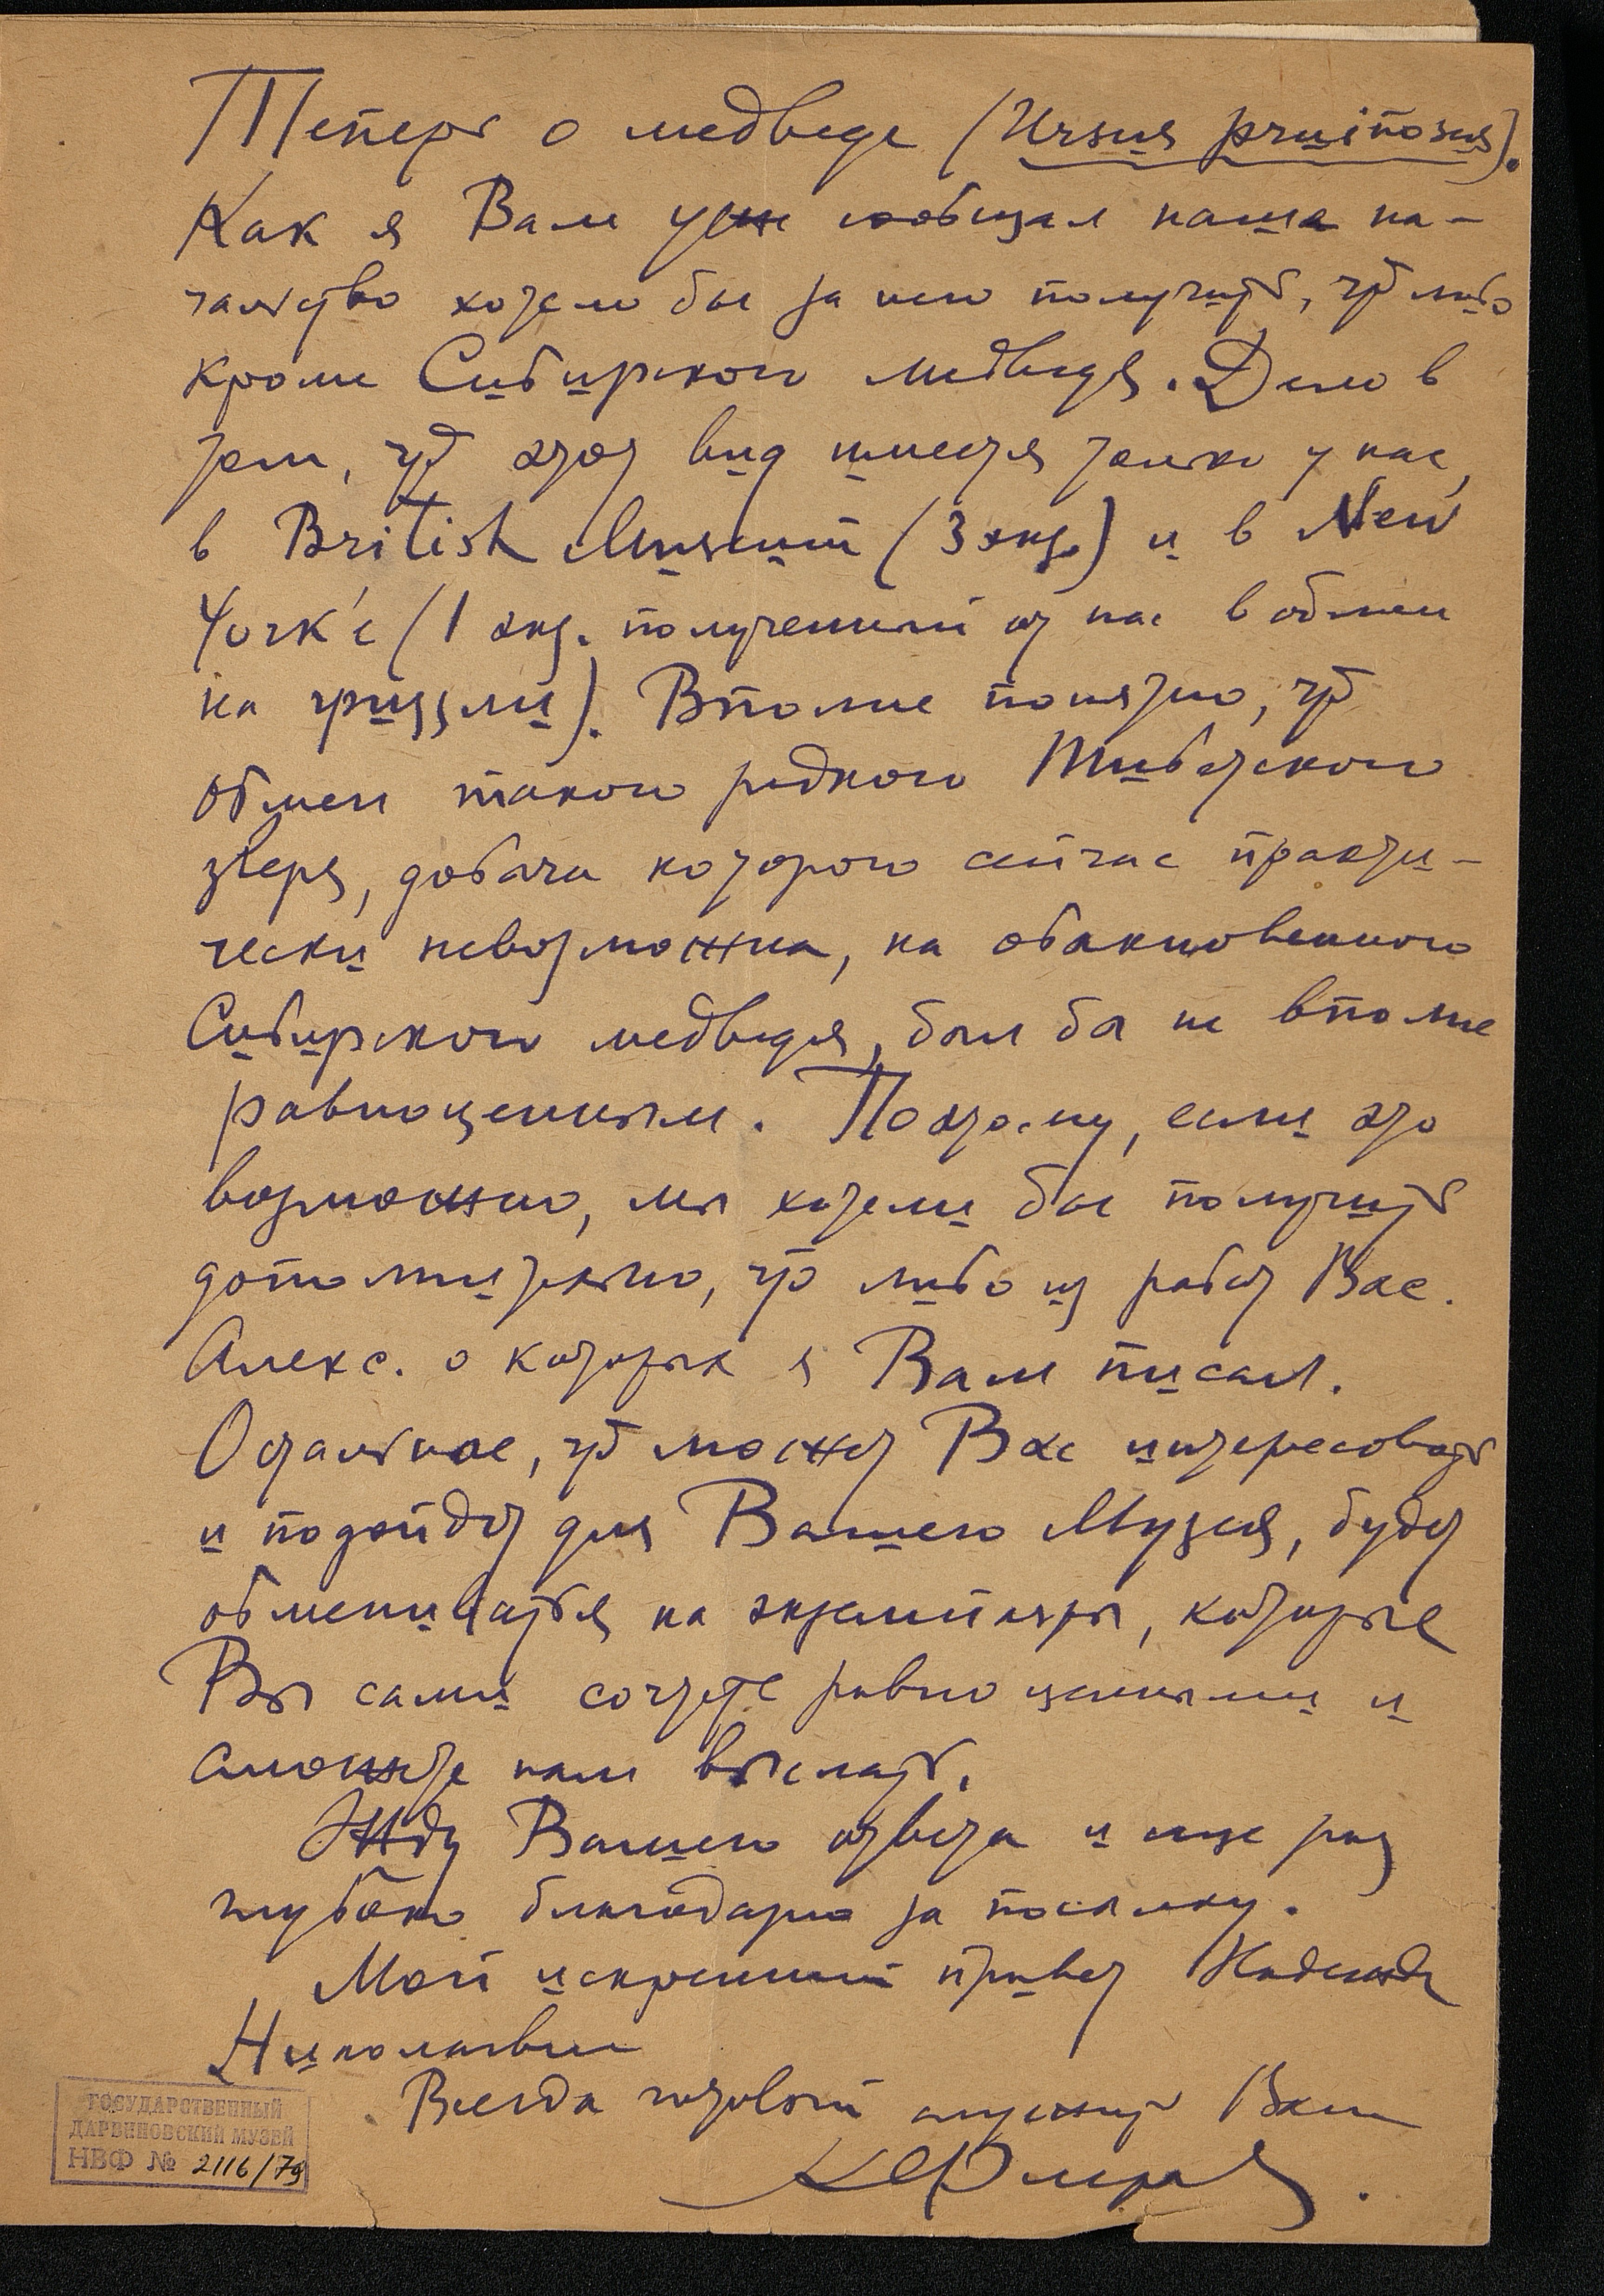 Теперь о медведе (Ursus pruinosus).
Как я Вам уже сообщал наше на-
чальство хотело бы за него получить, что либо
кроме Сибирского медведя. Дело в
том, что этот вид имеется только у нас,
в British Museum (3 экз.) и в New
York'е (1 экз. полученный от нас в обмен
на гризли). Вполне понятно, что
обмен такого редкого Тибетского
зверя, добыча которого сейчас практи-
чески невозможна, на обыкновенного
Сибирского медведя, был бы не вполне
равноценным. Поэтому, если это
возможно, мы хотели бы получить
дополнительно, что либо из работ Вас.
Алекс. о которых я Вам писал.
Остальное, что может Вас интересовать
и подойдет для Вашего Музея, будет
обмениваться на экземпляры, которые
Вы сами сочтете равноценными и
сможете нам выслать.
Жду Вашего ответа и еще раз
глубоко благодарю за посылку.
Мой искренний привет Надежде
Николаевне
Всегда готовый служить Вам
К Флеров.
ГОСУДАРСТВЕННЫЙ
ДАРВИНОВСКИЙ МУЗЕЙ
НВФ № 2116/79